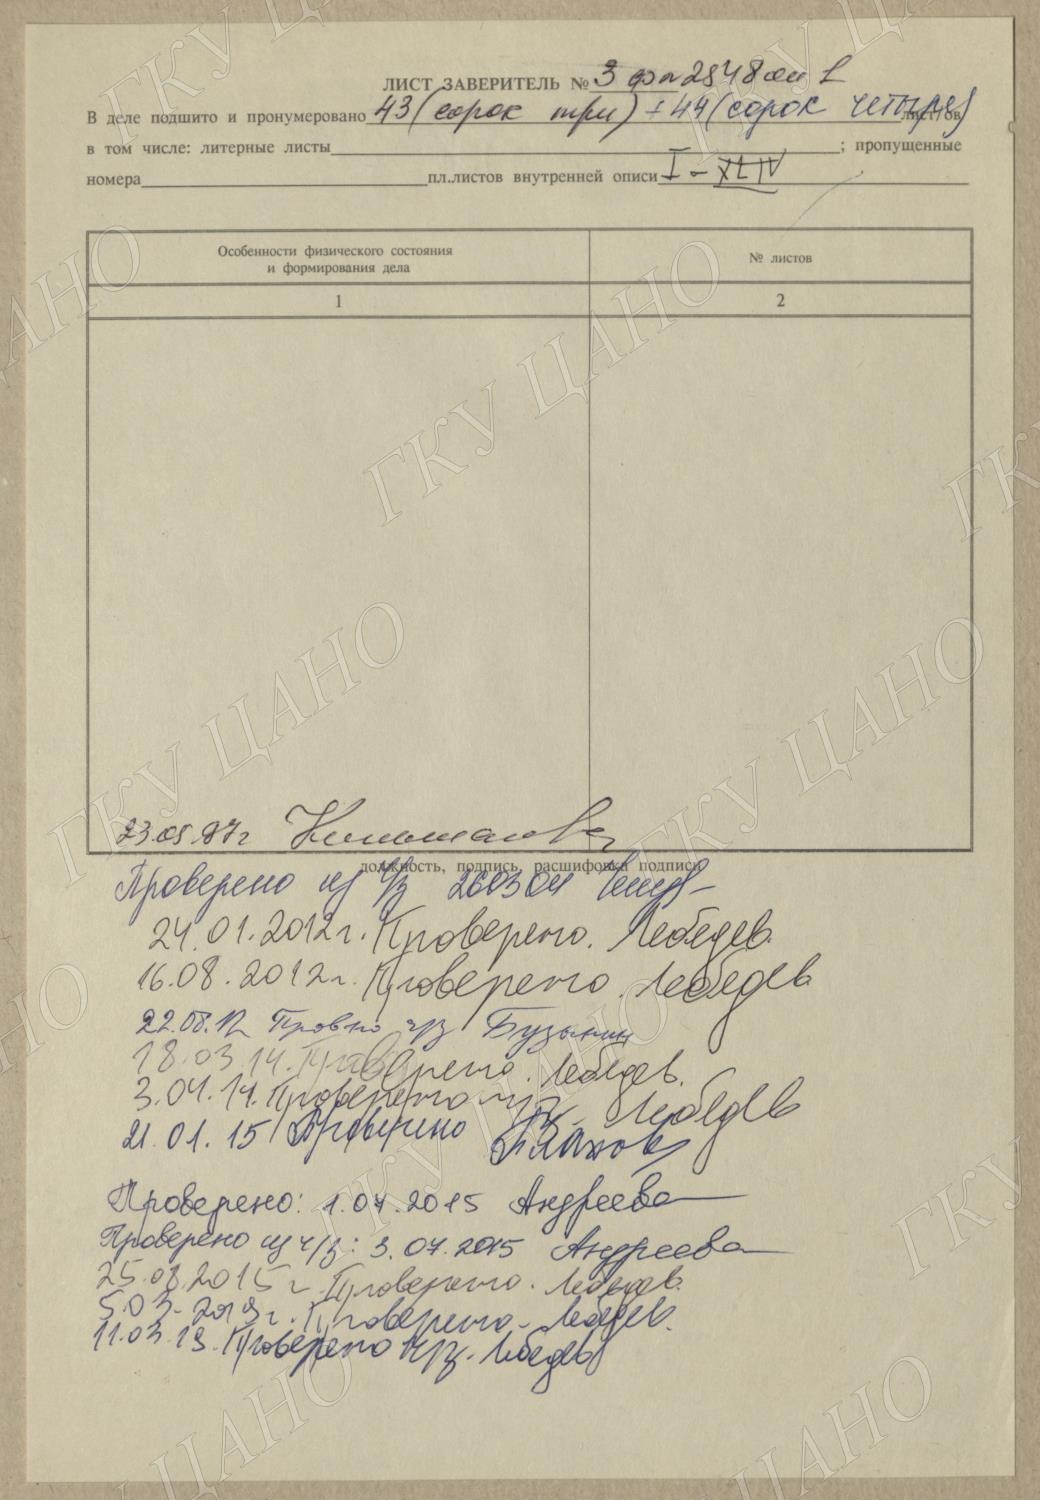 ЛИСТ ЗАВЕРИТЕЛЬ № 3 ф 2848 оп 1
В деле подшито и пронумеровано 43 (сорок три) + 44 (сорок четыре) листов
в том числе: литерные листы ; пропущенные
номера пл.листов внутренней описи I - XLIV
Особенности физического состояния № листов
и формирования дела
1 2
23.05.97г
должность, подпись, расшифовка подписи
Проверено из ч/з 260304
24.01.2012г. Проверено. Лебедев.
16.08.2012г. Проверено. Лебедев
22.08.12 ч/з Бузынин
18.03.14. Проверено. Лебедев.
3.04.14. Проверено ч/з. Лебедев
21.01.15 Проверено
Проверено: 1.07.2015 Андреева
Проверено из ч/з: 3.07.2015 Андреева
25.08.2015г Проверено. Лебедев.
5.03.2019г. Проверено. Лебедев.
11.03.19. Проверено ч/з. Лебедев
ГКУ ЦАНО